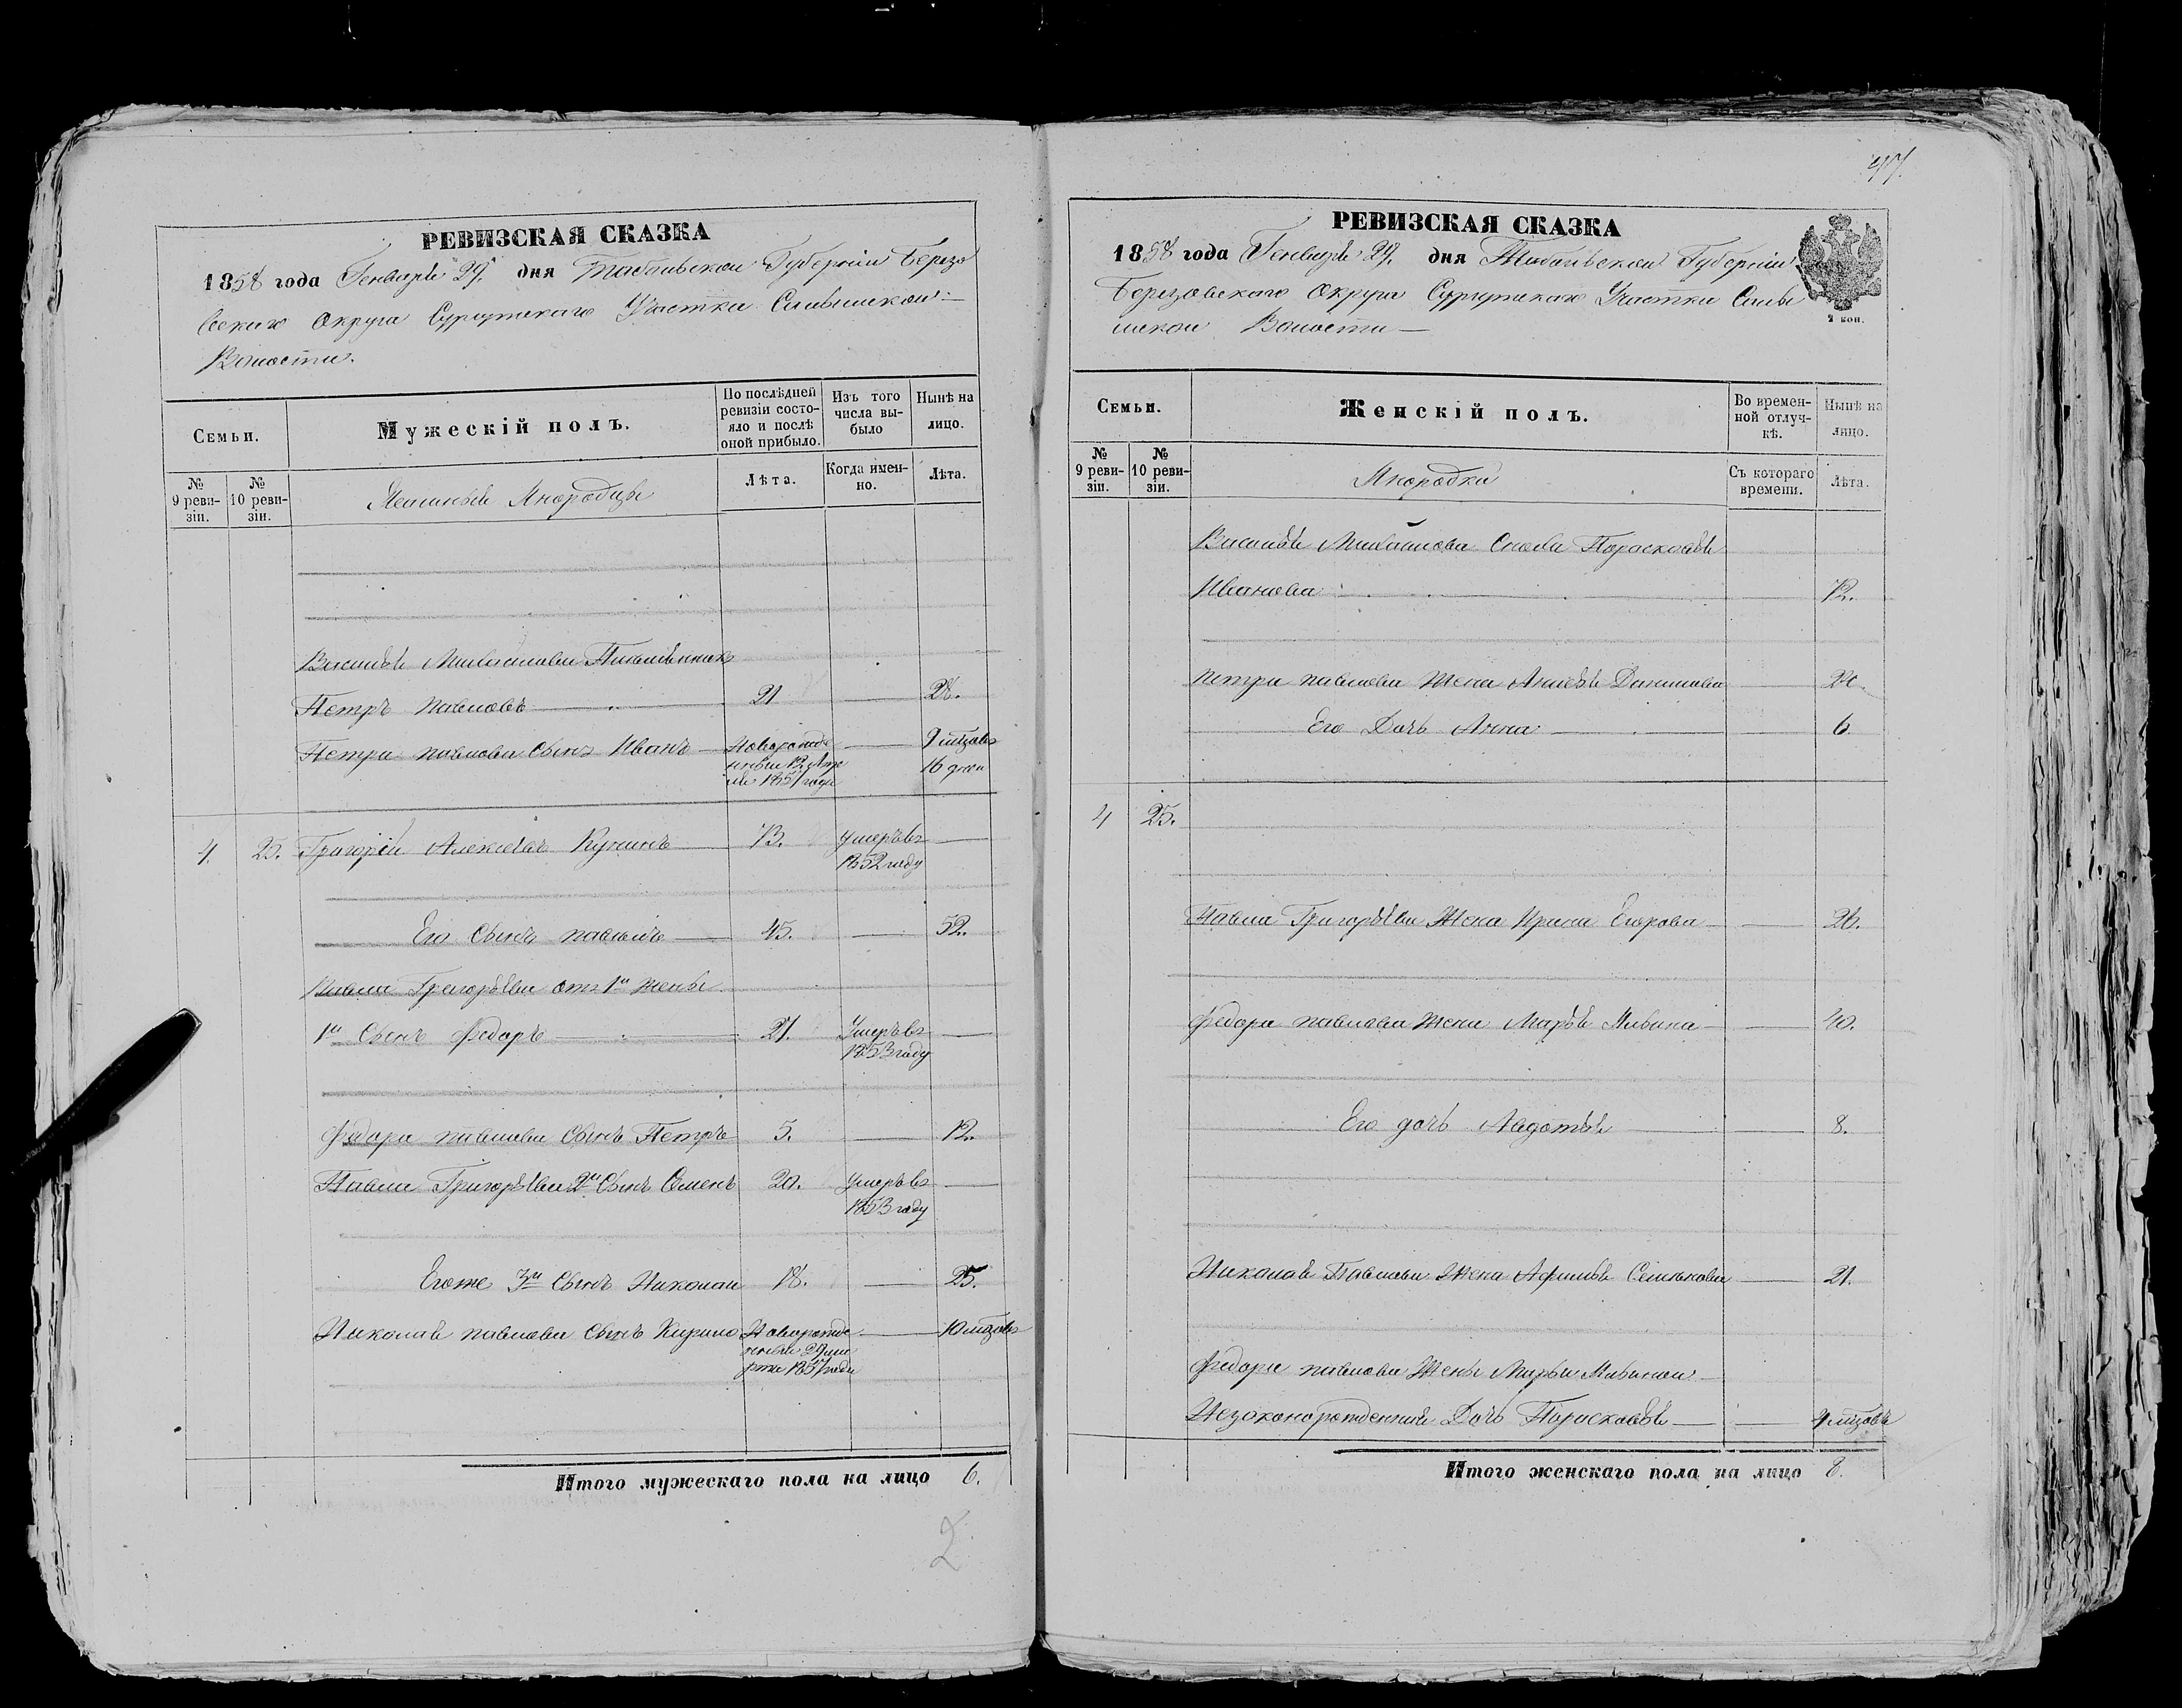 РЕВИЗСКАЯ СКАЗКА
1858 года Генваря 29. дня Тобольской Губерніи Березо
вскаго Округа Сургутскаго Участка Салымской
Волости.
Семьи.
Мужескій полъ.
По послѣдней ревизіи состояло и послѣ оной прибыло.
Изъ того числа выбыло
Нынѣ на лицо.
№ 9 ревизіи.
№ 10 ревизіи.
Инородцы
Лѣта.
Когда именно.
Лѣта.
Василья Михайлова
Петръ Павловъ 21 28.
Петра Павлова Сынъ Иванъ Новорожде
нный 12 Апре
ля 1857 года 9 мѣсяцовъ
16 дней
4. 25. Григорій Алексѣевъ Кунинъ 73. умеръ въ
1852 году
Его Сынъ Павелъ 45. 52.
Павла Григорьева отъ 1й жены
1й Сынъ Федоръ 27. Умеръ въ
1853 году
Федора Павлова Сынъ Петръ 5. 12.
Павла Григорьева 2й Сынъ Семенъ 20. умеръ въ
1853 году
Егоже 3й Сынъ Николай 18. 25.
Николая Павлова Сынъ Кирило Новорожде
нный 29 ма
рта 1857 года 10 мѣсяцовъ
Итого мужескаго пола на лицо 6.
2
РЕВИЗСКАЯ СКАЗКА
1858 года Генваря 29. дня Тобольской Губерніи
Березовскаго Округа Сургутскаго Участка Салы
мской Волости
Семьи.
Женскій полъ.
Во временной отлучкѣ.
Нынѣ на лицо.
№ 9 ревизіи.
№ 10 ревизіи.
Инородки
Съ котораго времени.
Лѣта.
Василья Михайлова Сноха Парасковья
Иванова 72.
Петра Павлова Жена Данилова
Его Дочь Анна 6.
4 25.
Павла Григорьева Жена Ирина Егорова 26.
Федора Павлова Жена Марья 40.
Его дочь Авдотья 8.
Николая Павлова Жена 21.
Федора Павлова Жены Марьи
Незаконорожденная Дочь Парасковья 4 мѣсяцовъ
Итого женскаго пола на лицо 8.